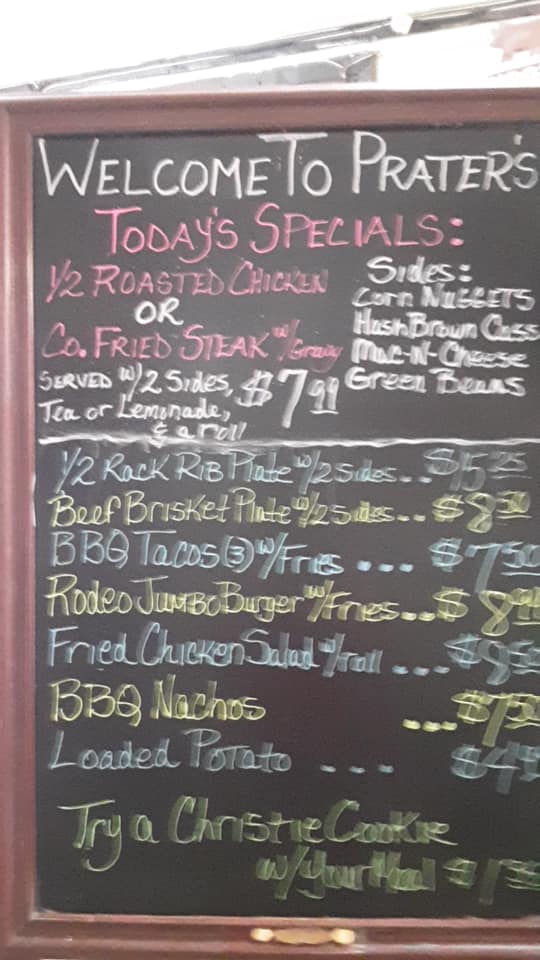 WELCOME TO PRATER'S
TODAY'S SPECIALS:
1/2 ROASTED CHICKEN
OR
CO. FRIED STEAK w/Gravy
SERVED w/2 Sides, $7.99
Tea or Lemonade,
& a roll
Sides:
Corn NUGGETS
HashBrown Cass
Mac-N-Cheese
Green Beans
1/2 Rack RIB Plate w/2 sides.. $15.25
Beef Brisket Plate w/2 sides... $8.50
BBQ Tacos (3) w/Fries ... $7.50
Rodeo Jumbo Burger w/Fries...$
Fried Chicken Salad w/roll ....
BBQ Nachos ... $7.50
Loaded Potato ....
Try a Christie Cookie
w/Your Meal